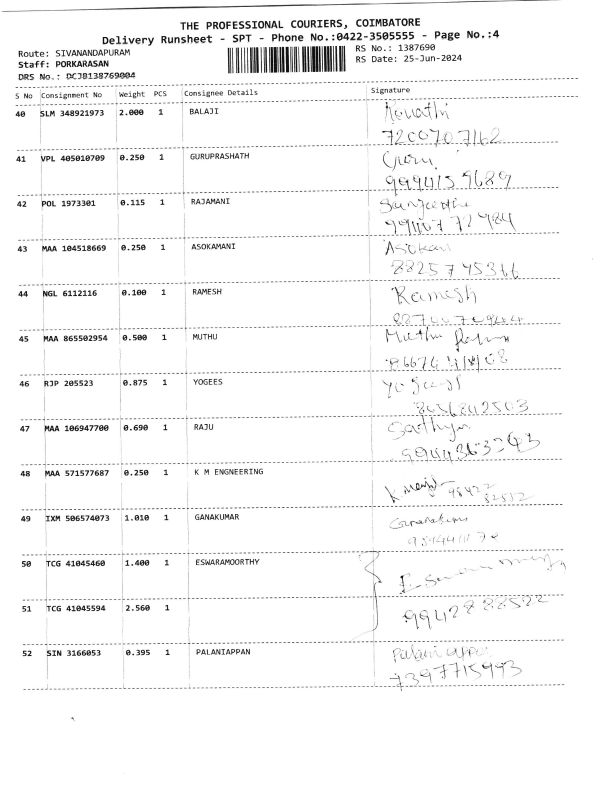 THE PROFESSIONAL COURIERS, COIMBATORE
Delivery Runsheet - SPT - Phone No.:0422-3505555 - Page No.:4
Route: SIVANANDAPURAM
RS No.: 1387690
Staff: PORKARASAN
RS Date: 25-Jun-2024
DRS No.: DCJB138769004
S No Consignment No Weight PCS Consignee Details Signature
40 SLM 348921973 2.000 1 BALAJI
7200707162
41 VPL 405010709 0.250 1 GURUPRASHATH Guru
9994159689
42 POL 1973301 0.115 1 RAJAMANI Sangeetha
43 MAA 104518669 0.250 1 ASOKAMANI Asokan
8825745366
44 NGL 6112116 0.100 1 RAMESH Ramesh
45 MAA 865502954 0.500 1 MUTHU Muthu
46 RJP 205523 0.875 1 YOGEES
47 MAA 106947700 0.690 1 RAJU Sathya
9944363243
48 MAA 571577687 0.250 1 K M ENGNEERING
49 IXM 506574073 1.010 1 GANAKUMAR
50 TCG 41045460 1.400 1 ESWARAMOORTHY
51 TCG 41045594 2.560 1
9942888522
52 SIN 3166053 0.395 1 PALANIAPPAN Palaniappa
7397715993